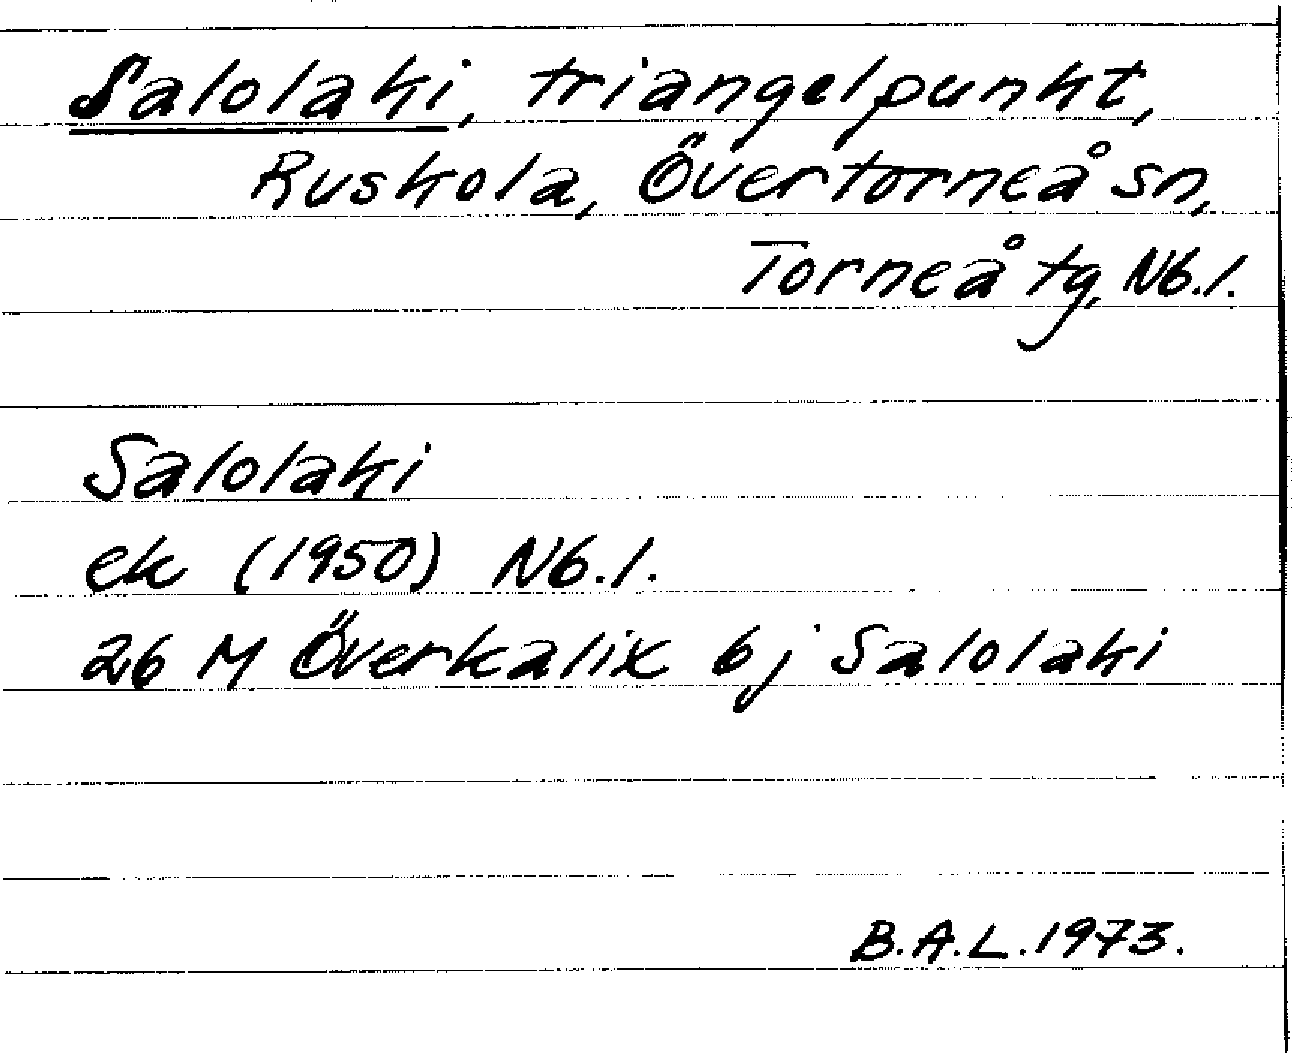 Salolaki, triangelpunkt,
Ruskola, Övertorneå sn,
Torneå tg, Nb.l.
Salolaki
ek (1950) Nb.l.
26 M Överkalix 6j Salolaki
B.A.L. 1973.